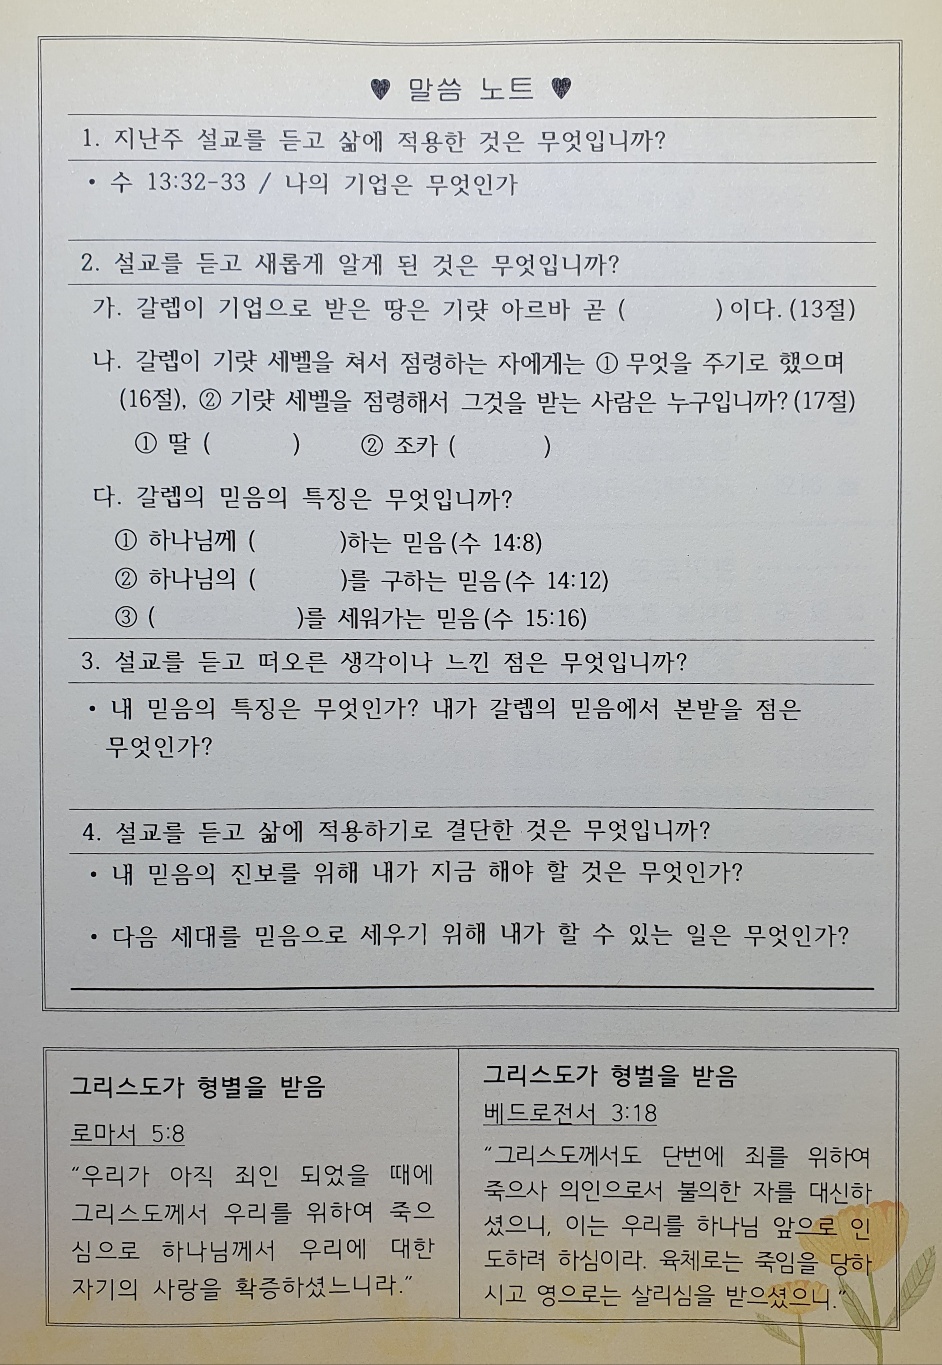 ♥ 말씀 노트 ♥
1. 지난주 설교를 듣고 삶에 적용한 것은 무엇입니까?
• 수 13:32-33 / 나의 기업은 무엇인가
2. 설교를 듣고 새롭게 알게 된 것은 무엇입니까?
가. 갈렙이 기업으로 받은 땅은 기럇 아르바 곧 (          )이다.(13절)
나. 갈렙이 기럇 세벨을 쳐서 점령하는 자에게는 ① 무엇을 주기로 했으며
(16절), ② 기럇 세벨을 점령해서 그것을 받는 사람은 누구입니까?(17절)
① 딸 (          )     ② 조카 (          )
다. 갈렙의 믿음의 특징은 무엇입니까?
① 하나님께 (          )하는 믿음(수 14:8)
② 하나님의 (          )를 구하는 믿음(수 14:12)
③ (               )를 세워가는 믿음(수 15:16)
3. 설교를 듣고 떠오른 생각이나 느낀 점은 무엇입니까?
• 내 믿음의 특징은 무엇인가? 내가 갈렙의 믿음에서 본받을 점은
무엇인가?
4. 설교를 듣고 삶에 적용하기로 결단한 것은 무엇입니까?
• 내 믿음의 진보를 위해 내가 지금 해야 할 것은 무엇인가?
• 다음 세대를 믿음으로 세우기 위해 내가 할 수 있는 일은 무엇인가?
그리스도가 형별을 받음
로마서 5:8
“우리가 아직 죄인 되었을 때에
그리스도께서 우리를 위하여 죽으
심으로 하나님께서 우리에 대한
자기의 사랑을 확증하셨느니라.”
그리스도가 형벌을 받음
베드로전서 3:18
“그리스도께서도 단번에 죄를 위하여
죽으사 의인으로서 불의한 자를 대신하
셨으니, 이는 우리를 하나님 앞으로 인
도하려 하심이라. 육체로는 죽임을 당하
시고 영으로는 살리심을 받으셨으니.”